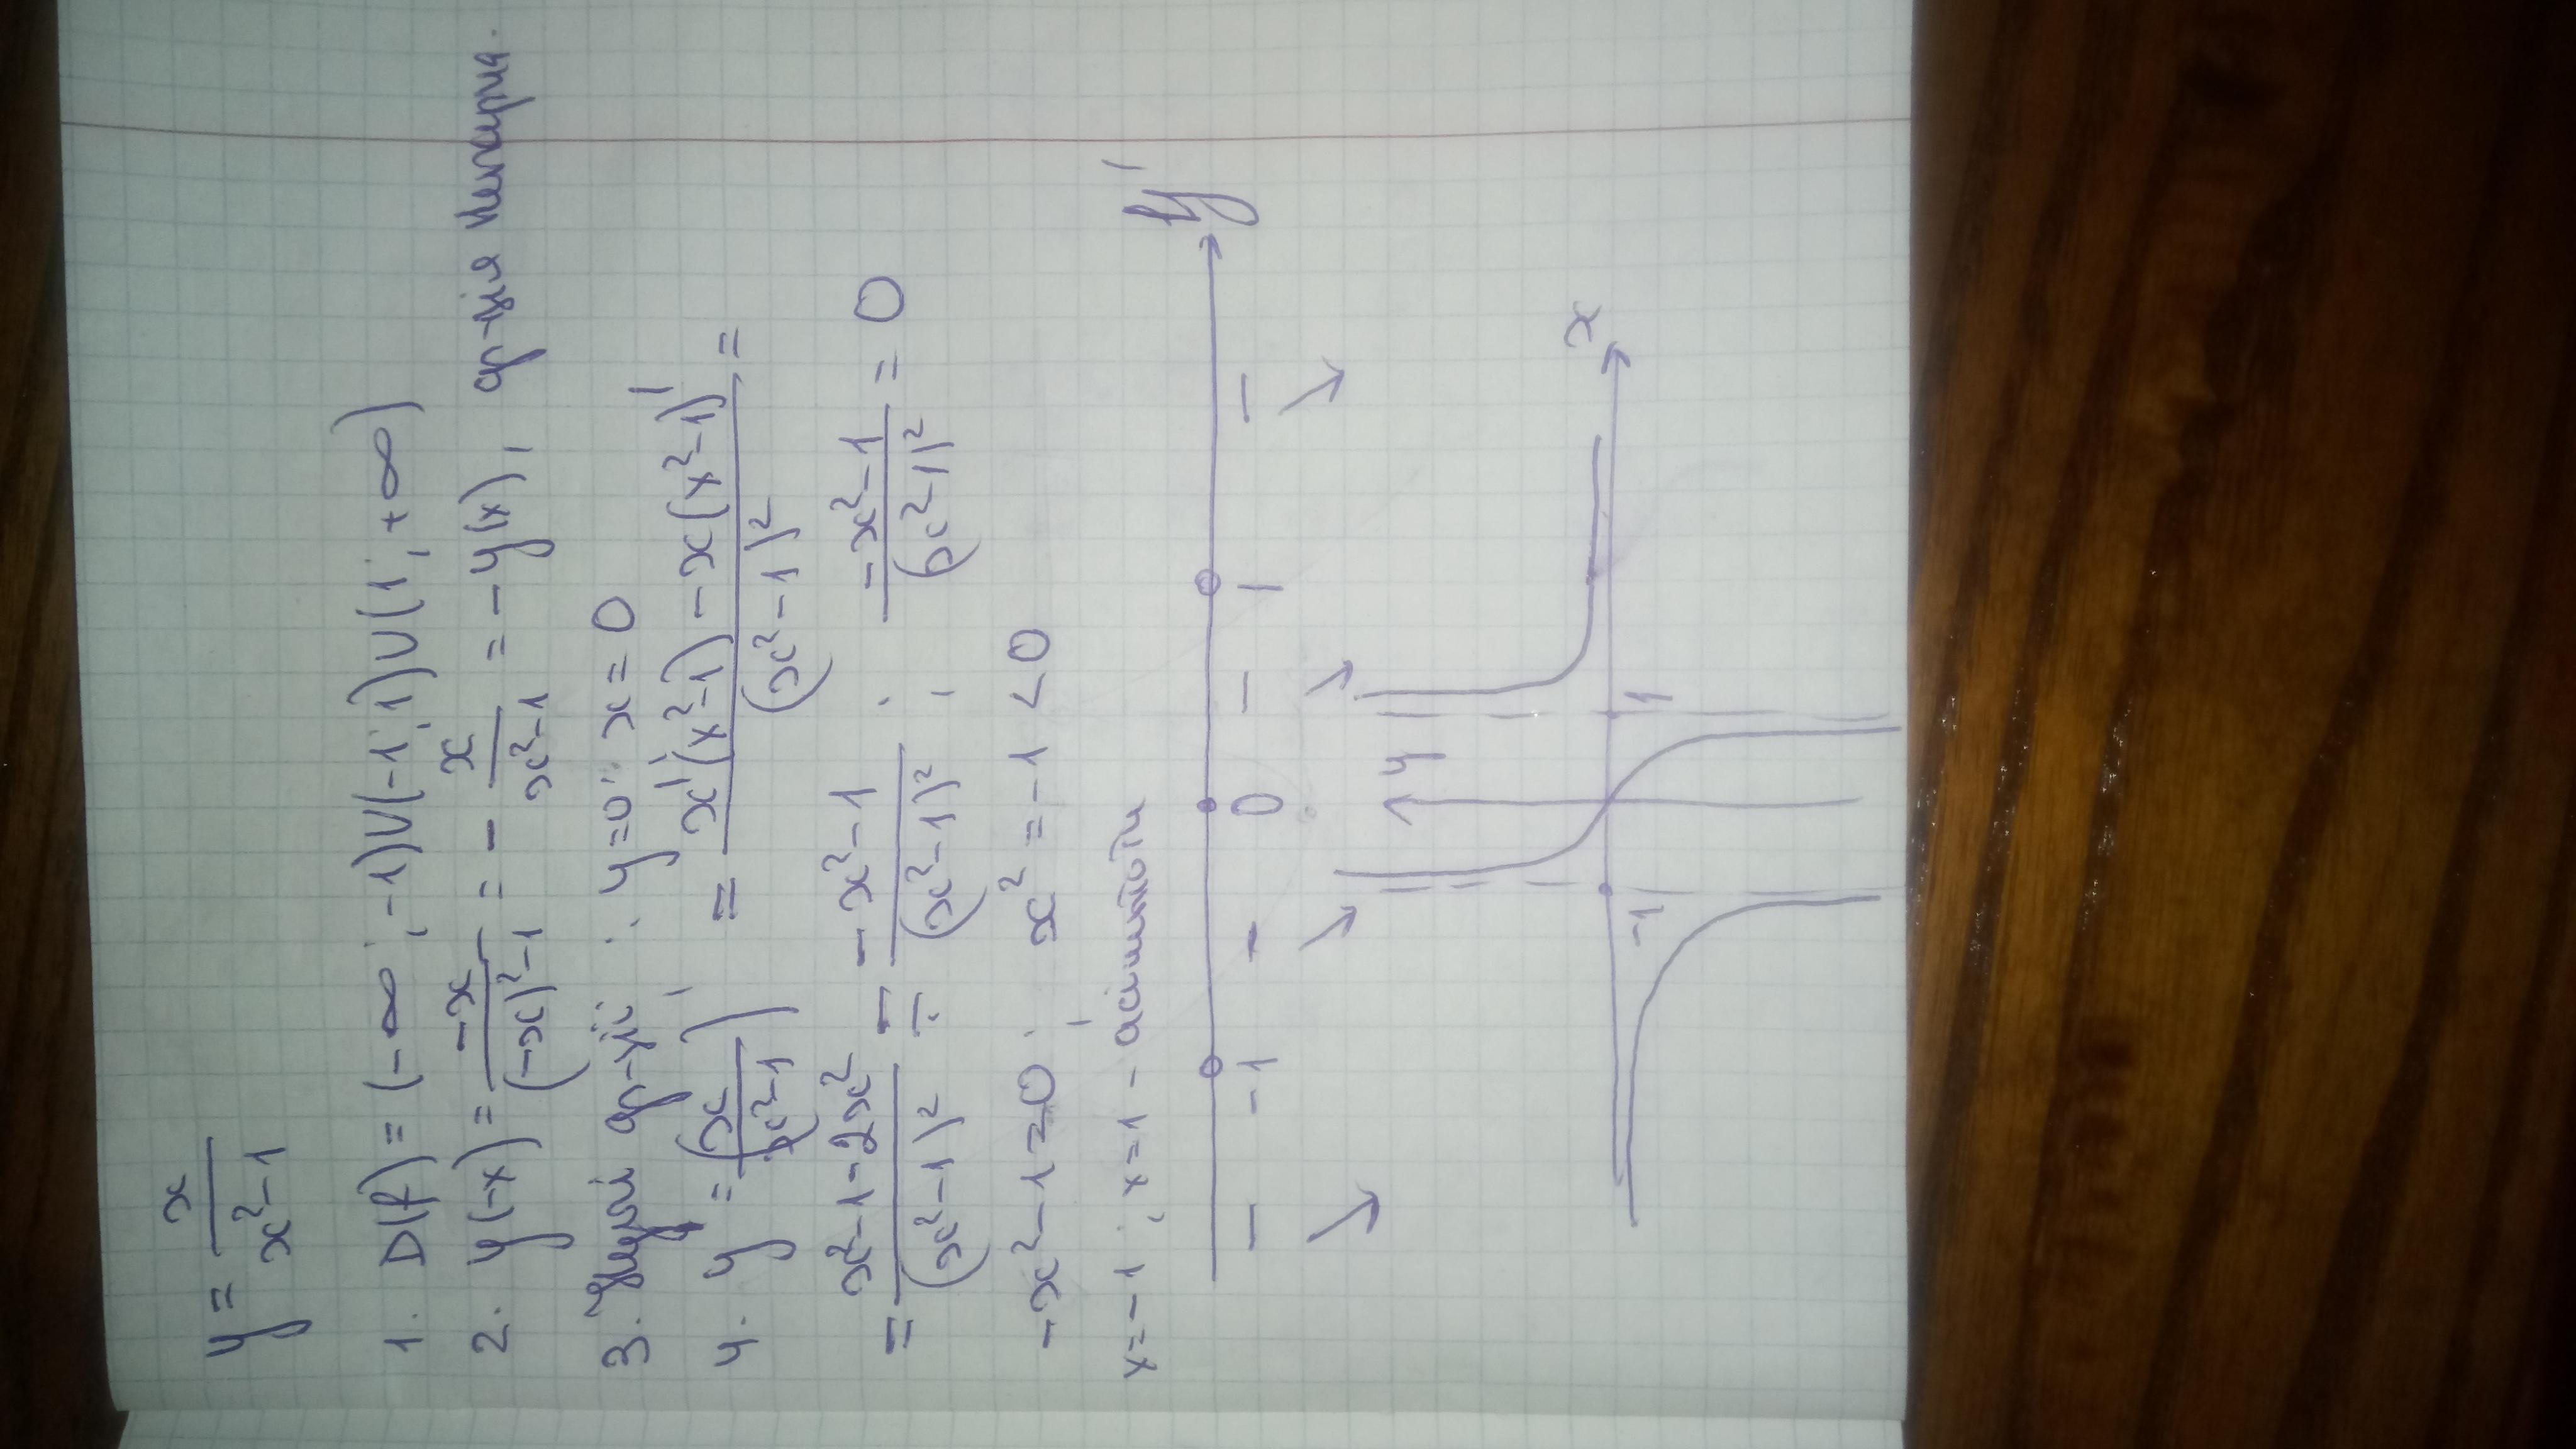 y = x/(x²-1)
1. D(f) = (-∞; -1)∪(-1; 1)∪(1; +∞)
2. y(-x) = -x/((-x)²-1) = - x/(x²-1) = -y(x), ф-ція непарна.
3. Нулі ф-ції: y=0; x=0
4. y' = (x/(x²-1))' = (x'(x²-1) - x(x²-1)')/(x²-1)² =
= (x²-1-2x²)/(x²-1)² = (-x²-1)/(x²-1)²; (-x²-1)/(x²-1)² = 0
-x²-1=0; x² = -1 < 0
x=-1; x=1 - асимптоти
y'
-1 0 1
- - - -
↘ ↘ ↘ ↘
y
x
-1 1